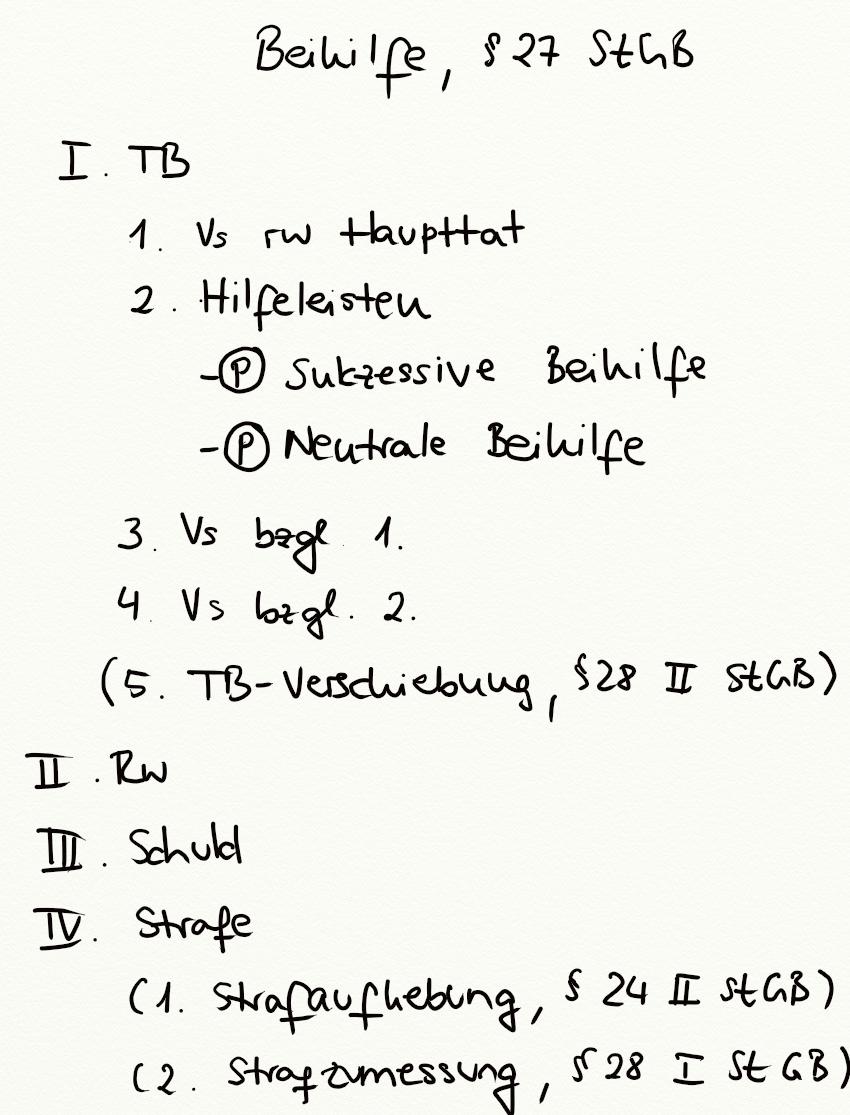 Beihilfe, § 27 StGB
I. TB
1. Vs rw Haupttat
2. Hilfeleisten
- Ⓟ Sukzessive Beihilfe
- Ⓟ Neutrale Beihilfe
3. Vs bzgl. 1.
4. Vs bzgl. 2.
(5. TB-Verschiebung, § 28 II StGB)
II. Rw
III. Schuld
IV. Strafe
(1. Strafaufhebung, § 24 II StGB)
(2. Strafzumessung, § 28 I StGB)